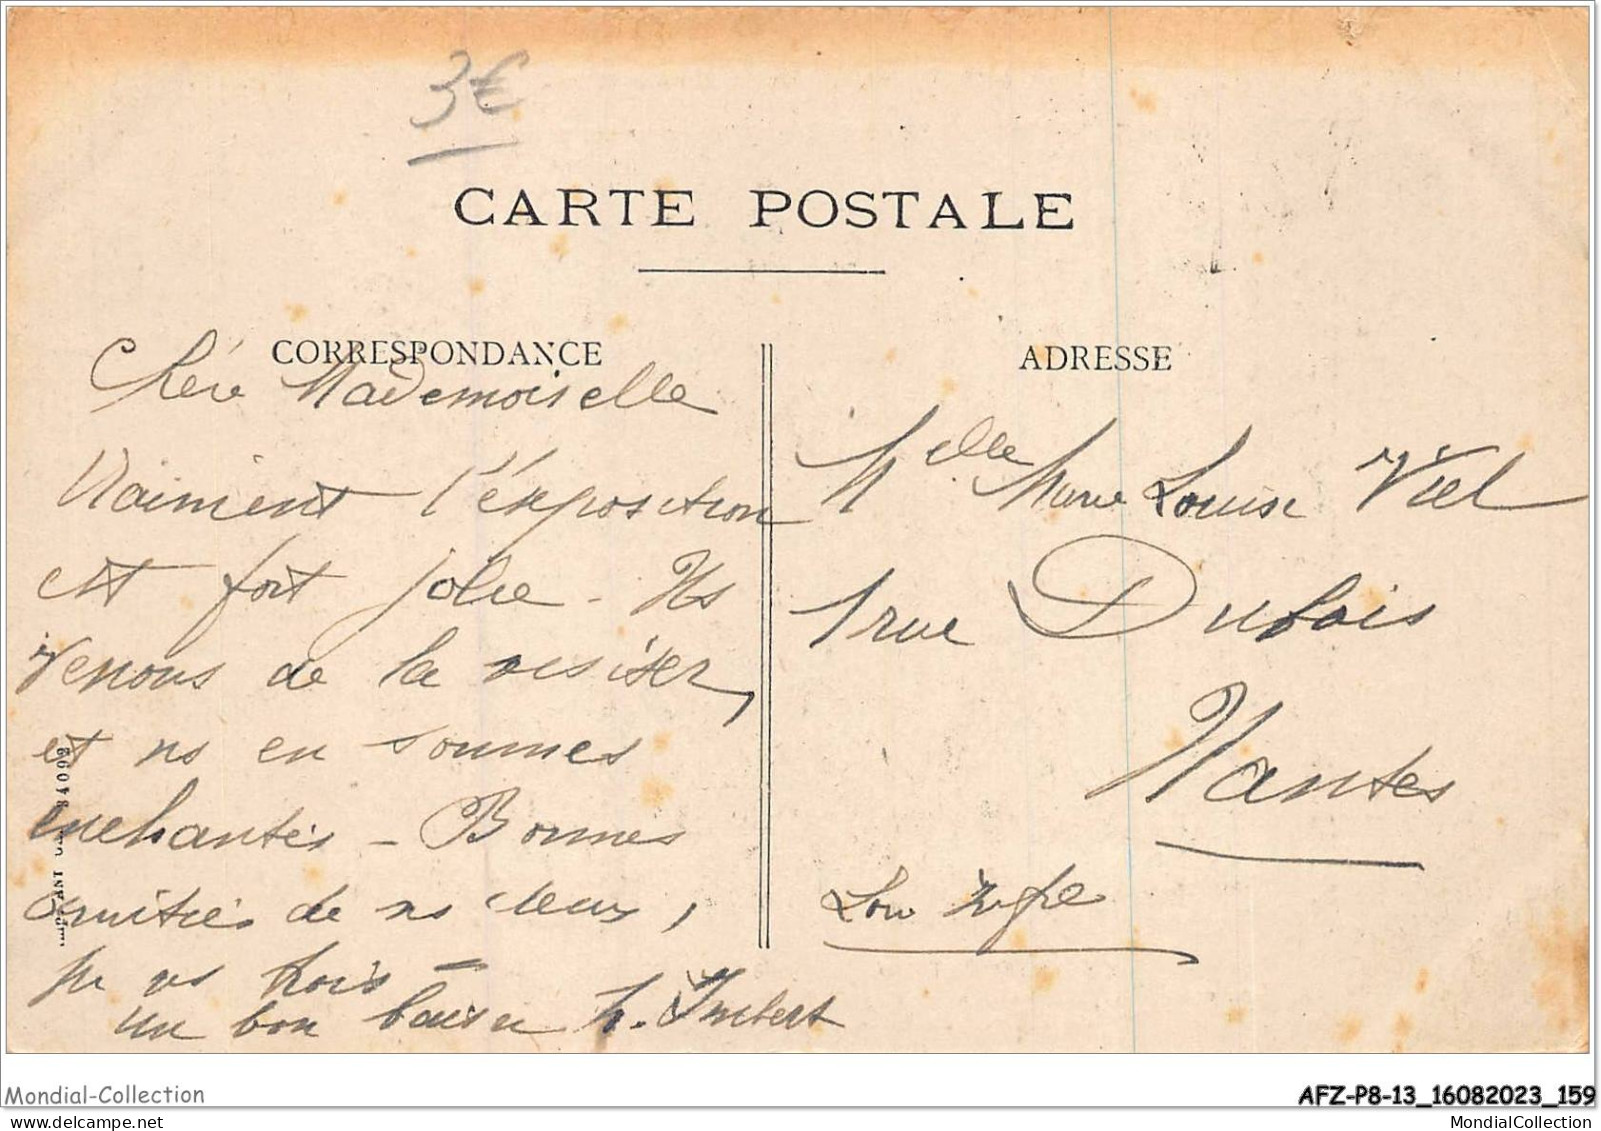 3€
CARTE POSTALE
CORRESPONDANCE
Chère Mademoiselle
Vraiment l'exposition
est fort jolie - Ns
venons de la visiter,
et ns en sommes
enchantés - Bonnes
amitiés de ns deux,
pr vs trois -
un bon baiser h. Imbert
ADRESSE
Melle Marie Louise Viel
1 rue Dubois
Nantes
Loire Infre
34092
Mondial-Collection
AFZ-P8-13_16082023_159
www.delcampe.net
MondialCollection